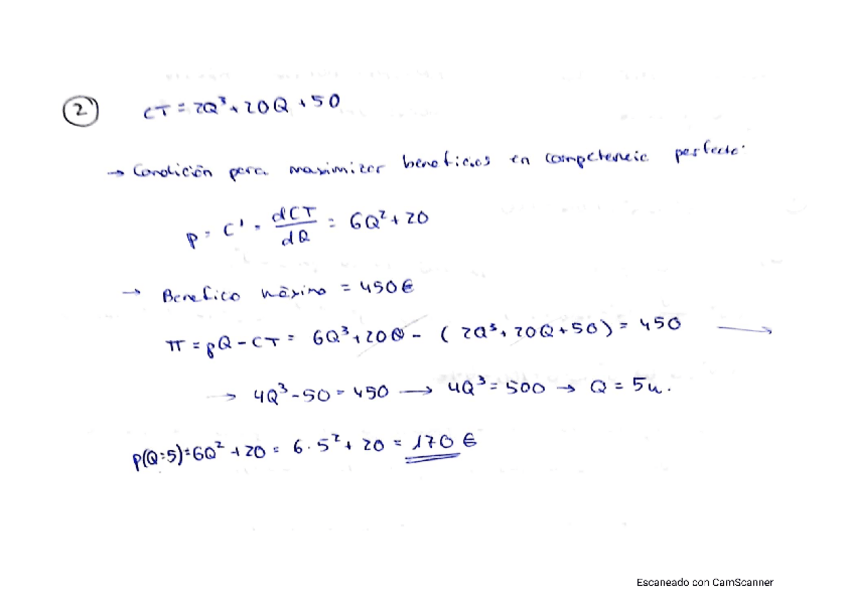 2) CT = 2Q³ + 20Q + 50
→ Condición para maximizar beneficios en competencia perfecta:
p = C' = dCT/dQ = 6Q² + 20
→ Benefico máximo = 450€
π = pQ - CT = 6Q³ + 20Q - (2Q³ + 20Q + 50) = 450 →
→ 4Q³ - 50 = 450 → 4Q³ = 500 → Q = 5u.
p(Q=5) = 6Q² + 20 = 6·5² + 20 = 170€
Escaneado con CamScanner